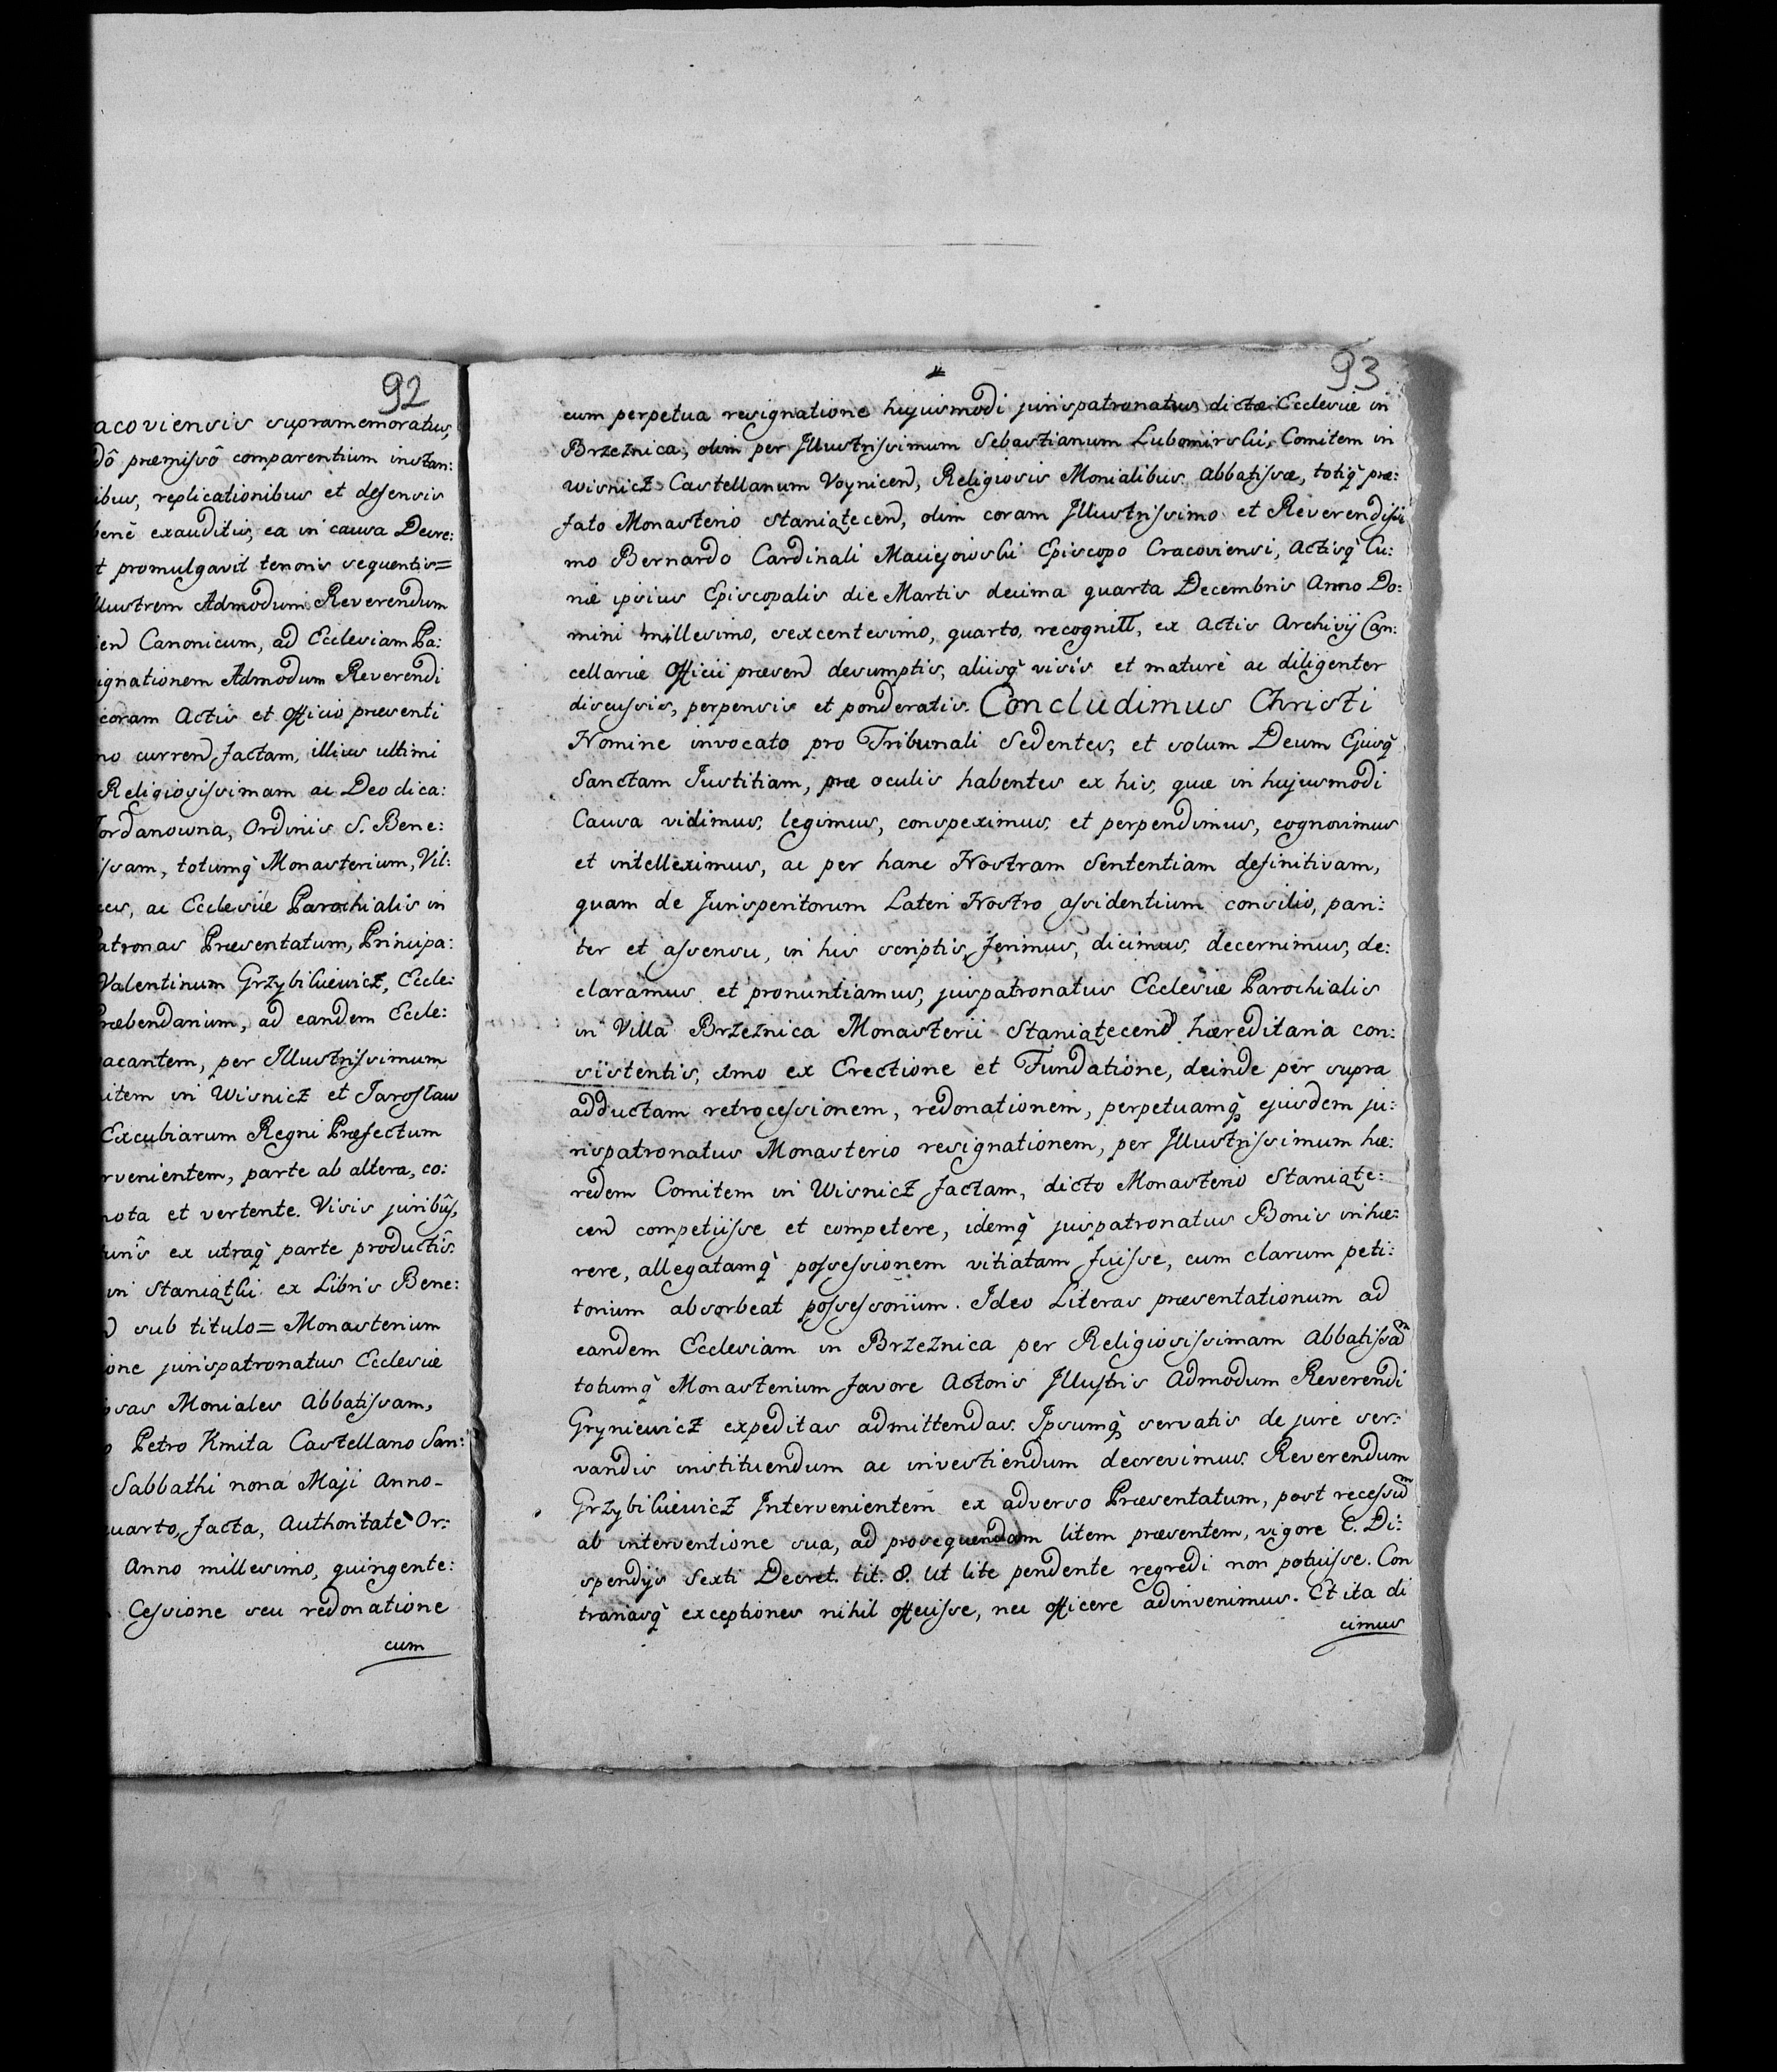 92
acoviensis supramemoratus,
dô præmissô comparentium instan:
ibus, replicationibus et defensis
benè exauditis, ea in causa Decre:
t promulgavit tenoris sequentis=
llustrem Admodum Reverendum
en Canonicum, ad Ecclesiam Pa:
ignationem Admodum Reverendi
coram Actis et Officio præsenti
no curren factam, illius ultimi
Religiosissimam ac Deo dica:
Jordanowna, Ordinis S. Bene:
issam, totumq̃ Monasterium, Vil:
ces, ac Ecclesiæ Parochialis in
atronas Præsentatum, Principa:
Valentinum Grzybikiewicz, Eccle:
ræbendarium, ad eandem Eccle:
acantem, per Illustrissimum
item in Wisnicz et Jarosław
Excubiarum Regni Præfectum
rvenientem, parte ab altera, co:
nota et vertente. Visis juribûs,
turis ex utraq̃ parte productis.
in Staniątki ex Libris Bene:
sub titulo= Monasterium
ione jurispatronatus Ecclesiæ
osas Moniales Abbatissam,
o Petro Kmita Castellano San:
Sabbathi nona Maji Anno-
uarto, facta, Authoritatè Or:
Anno millesimo, quingente:
Cessione seu redonatione
cum
93
cum perpetua resignatione hujusmodi jurispatronatus dictæ Ecclesiæ in
Brzeznica, olim per Illustrissimum Sebastianum Lubomirski, Comitem in
Wisnicz Castellanum Voynicen, Religiosis Monialibus Abbatissæ, totiq̃ præ:
fato Monasterio Staniątecen, olim coram Illustrissimo et Reverendissi
mo Bernardo Cardinali Macieiowski Episcopo Cracoviensi, Actisq̃ Cu:
riæ ipsius Episcopalis die Martis decima quarta Decembris Anno Do:
mini millesimo, sexcentesimo, quarto, recognitt, ex Actis Archivij Can:
cellariæ Officii præsen desumptis, aliisq̃ visis et maturè ac diligenter
discussis, perpensis et ponderatis. Concludimus Christi
Nomine invocato pro Tribunali Sedentes, et solum Deum Ejusq̃
Sanctam Iustitiam, præ oculis habentes ex his, quæ in hujusmodi
Causa vidimus, legimus, conspeximus, et perpendimus, cognovimus
et intelleximus, ac per hanc Nostram Sententiam definitivam,
quam de Jurisperitorum Lateri Nostro assidentium consilio, pari:
ter et assensu, in his scriptis, ferimus, dicimus, decernimus, de:
claramus et pronuntiamus, juspatronatus Ecclesiæ Parochialis
in Villa Brzeznica Monasterii Staniątecen hæreditaria con:
sistentis, imo ex Erectione et Fundatione, deinde per supra
adductam retrocessionem, redonationem, perpetuamq̃ ejusdem ju:
rispatronatus Monasterio resignationem, per Illustrissimum hæ:
redem Comitem in Wisnicz factam, dicto Monasterio Staniąte:
cen competiisse et competere, idemq̃ juspatronatus Bonis inhæ:
rere, allegatamq̃ possessionem vitiatam fuisse, cum clarum peti:
torium absorbeat possessorium. Ideo Literas præsentationum ad
eandem Ecclesiam in Brzeznica per Religiosissimam Abbatissam
totumq̃ Monasterium favore Actoris Illustris Admodum Reverendi
Gryniewicz expeditas admittendas. Ipsumq̃ servatis de jure ser:
vandis instituendum ac investiendum decrevimus. Reverendum
Grzybikiewicz Intervenientem ex adverso Præsentatum, post recessum
ab interventione sua, ad prosequendam litem præsentem, vigore C. Di:
spendijs Sexti Decret. tit. 8. Ut lite pendente regredi non potuisse. Con
trariasq̃ exceptiones nihil offecisse, nec officere adinvenimus. Et ita di
cimus